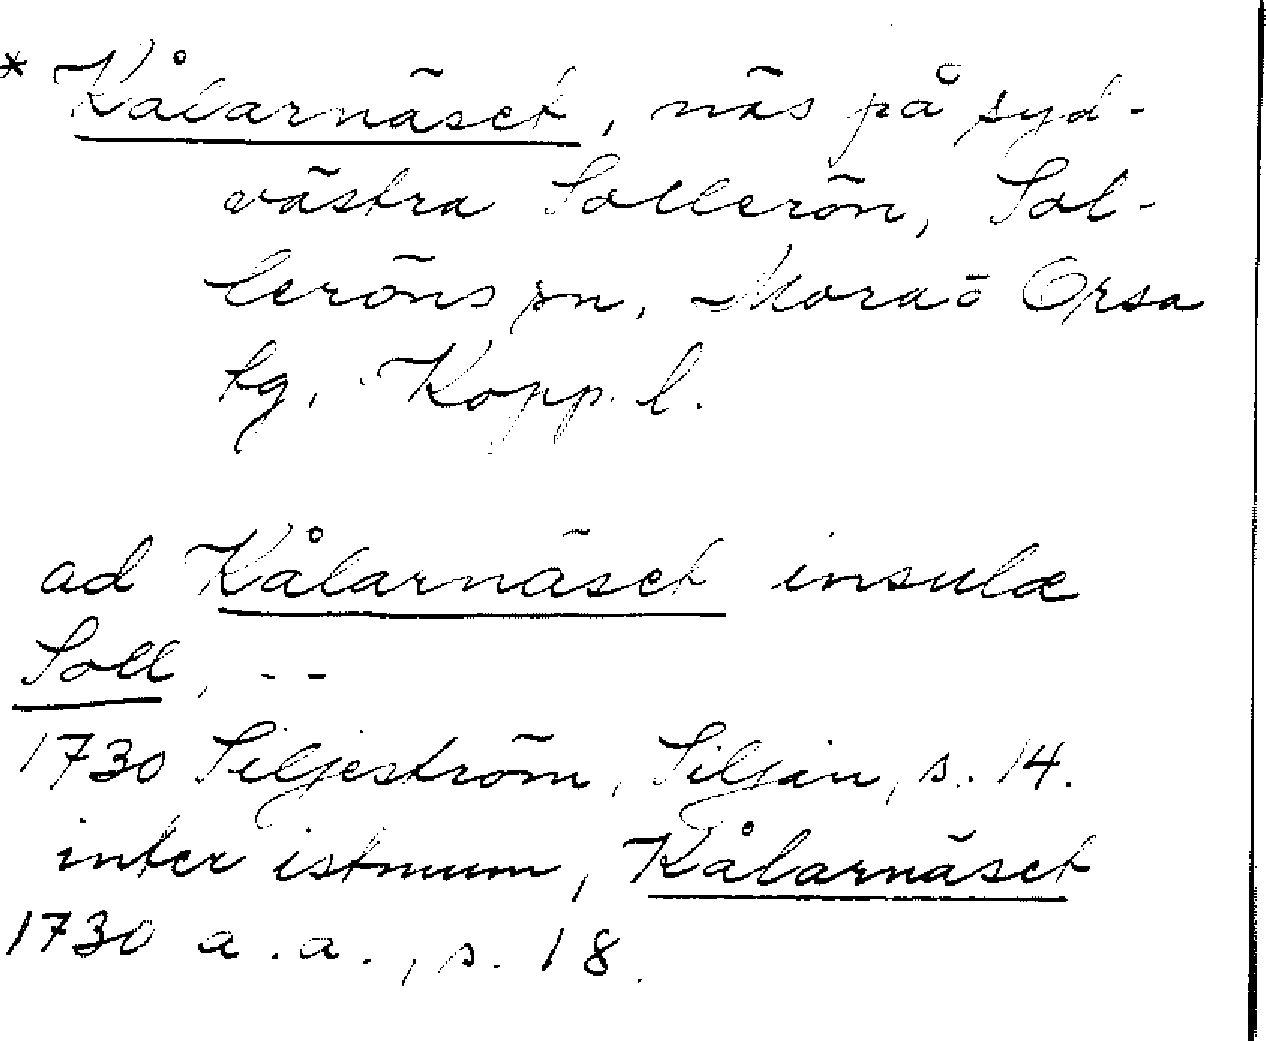 * Kålarnäset, näs på syd-
västra Sollerön, Sol-
leröns sn, Mora o Orsa
tg, Kopp. l.
ad Kålarnäset insulæ
Soll, --
1730 Siljeström, Siljan, s. 14.
inter istmum, Kålarnäset
1730 a.a., s. 18.